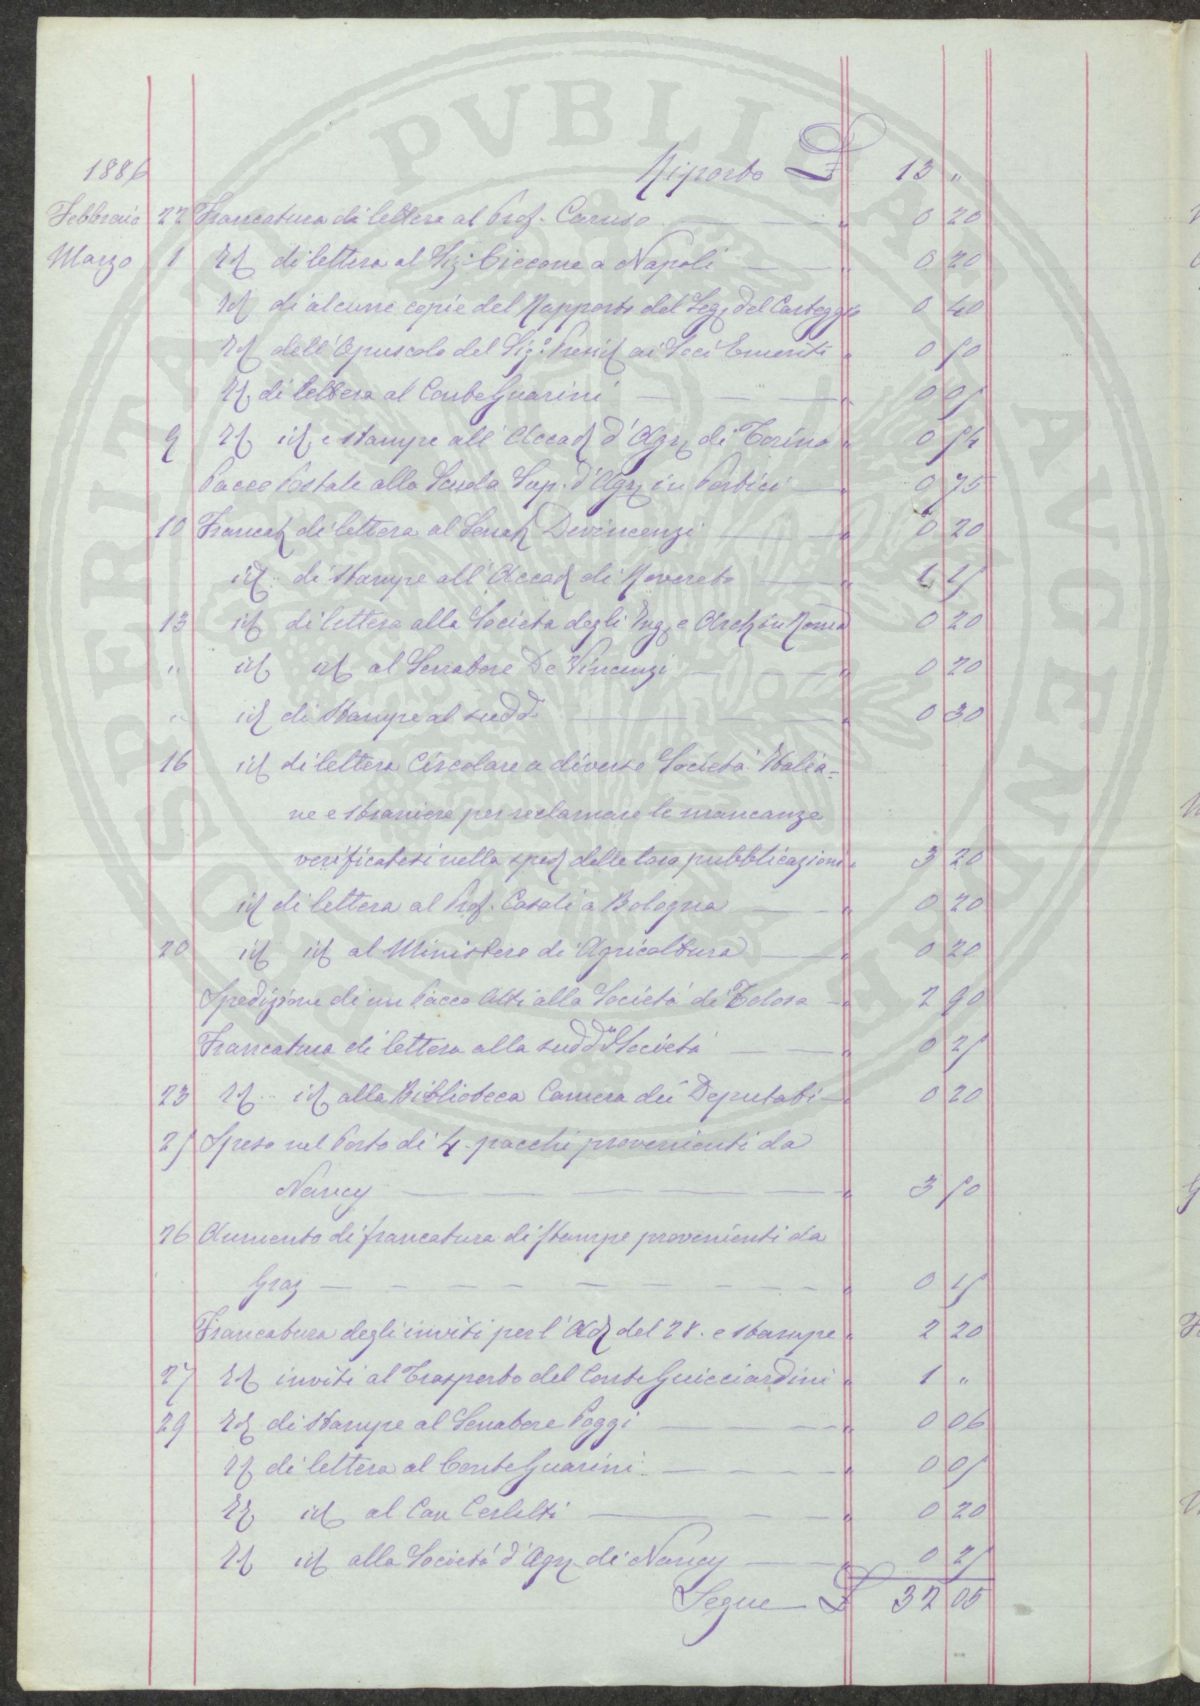 PUBLICAE
PROSPERITATI AUGENDAE
1886 Riporto £ 13 "
Febbraio 22 Francatura di lettera al Prof. Caruso — " 0 20
Marzo 1 Id di lettera al Sig. Ciccone a Napoli — " 0 20
Id di alcune copie del Rapporto del Seg. del Carteggio 0 40
Id dell'Opuscolo del Sig. Presid ai Soci Emeriti " 0 50
Id di lettera al Conte Guarini — " 0 05
9 Id id e stampe all'Accad d'Agr di Torino " 0 54
Pacco Postale alla Scuola Sup. d'Agr in Portici — " 0 75
10 Francat di lettera al Senat Devincenzi — " 0 20
id di stampe all'Accad di Rovereto — " 1 15
13 id di lettera alla Società degli Ing e Arch in Roma 0 20
" id id al Senatore De Vincenzi — " 0 20
" id di Stampe al sudd. — " 0 30
16 id di lettera Circolare a diverse Società Italia=
ne e straniere per reclamare le mancanze
verificatesi nella sped delle loro pubblicazioni " 3 20
id di lettera al Prof. Casali a Bologna — " 0 20
20 id id al Ministero di Agricoltura — " 0 20
Spedizione di un Pacco Atti alla Società di Tolosa — " 2 90
Francatura di lettera alla sudd.a Società — " 0 25
23 Id id alla Biblioteca Camera dei Deputati — " 0 20
25 Speso nel Porto di 4 pacchi provenienti da
Nancy — " 3 50
26 Aumento di francatura di stampe provenienti da
Graz — " 0 15
Francatura degli inviti per l'Ad del 28. e stampe " 2 20
27 Id inviti al Trasporto del Conte Guicciardini " 1 "
29 Id di stampe al Senatore Poggi — " 0 06
Id di lettera al Conte Guarini — " 0 05
Id id al Cav Cerletti — " 0 20
Id id alla Società d'Agr di Nancy — " 0 25
Segue £ 32 05